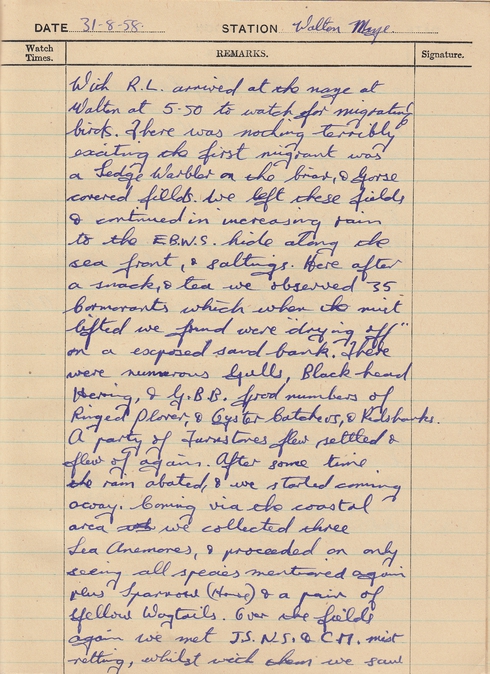 DATE 31-8-58. STATION Walton Naze
Watch Times. REMARKS. Signature.
With R.L. arrived at the naze at
Walton at 5-50 to watch for migrating
birds. There was nothing terribly
exciting the first migrant was
a Sedge Warbler on the briar, & Gorse
covered fields. We left these fields
& continued in increasing rain
to the E.B.W.S. hide along the
sea front, & saltings. Here after
a snack, & tea we observed 35
Cormorants which when the mist
lifted we found were "drying off"
on a exposed sand bank. There
were numerous Gulls, Black head
Herring, & G.B.B. good numbers of
Ringed Plover, & Oyster Catchers, & Redshanks.
A party of Turnstones flew settled &
flew of again. After some time
the rain abated, & we started coming
away. Coming via the coastal
area we collected three
Sea Anemones, & proceeded on only
seeing all species mentioned again
plus Sparrow (House) & a pair of
Yellow Wagtails. Over the fields
again we met J.S. N.S. & C.M. mist
netting, whilst with them we saw